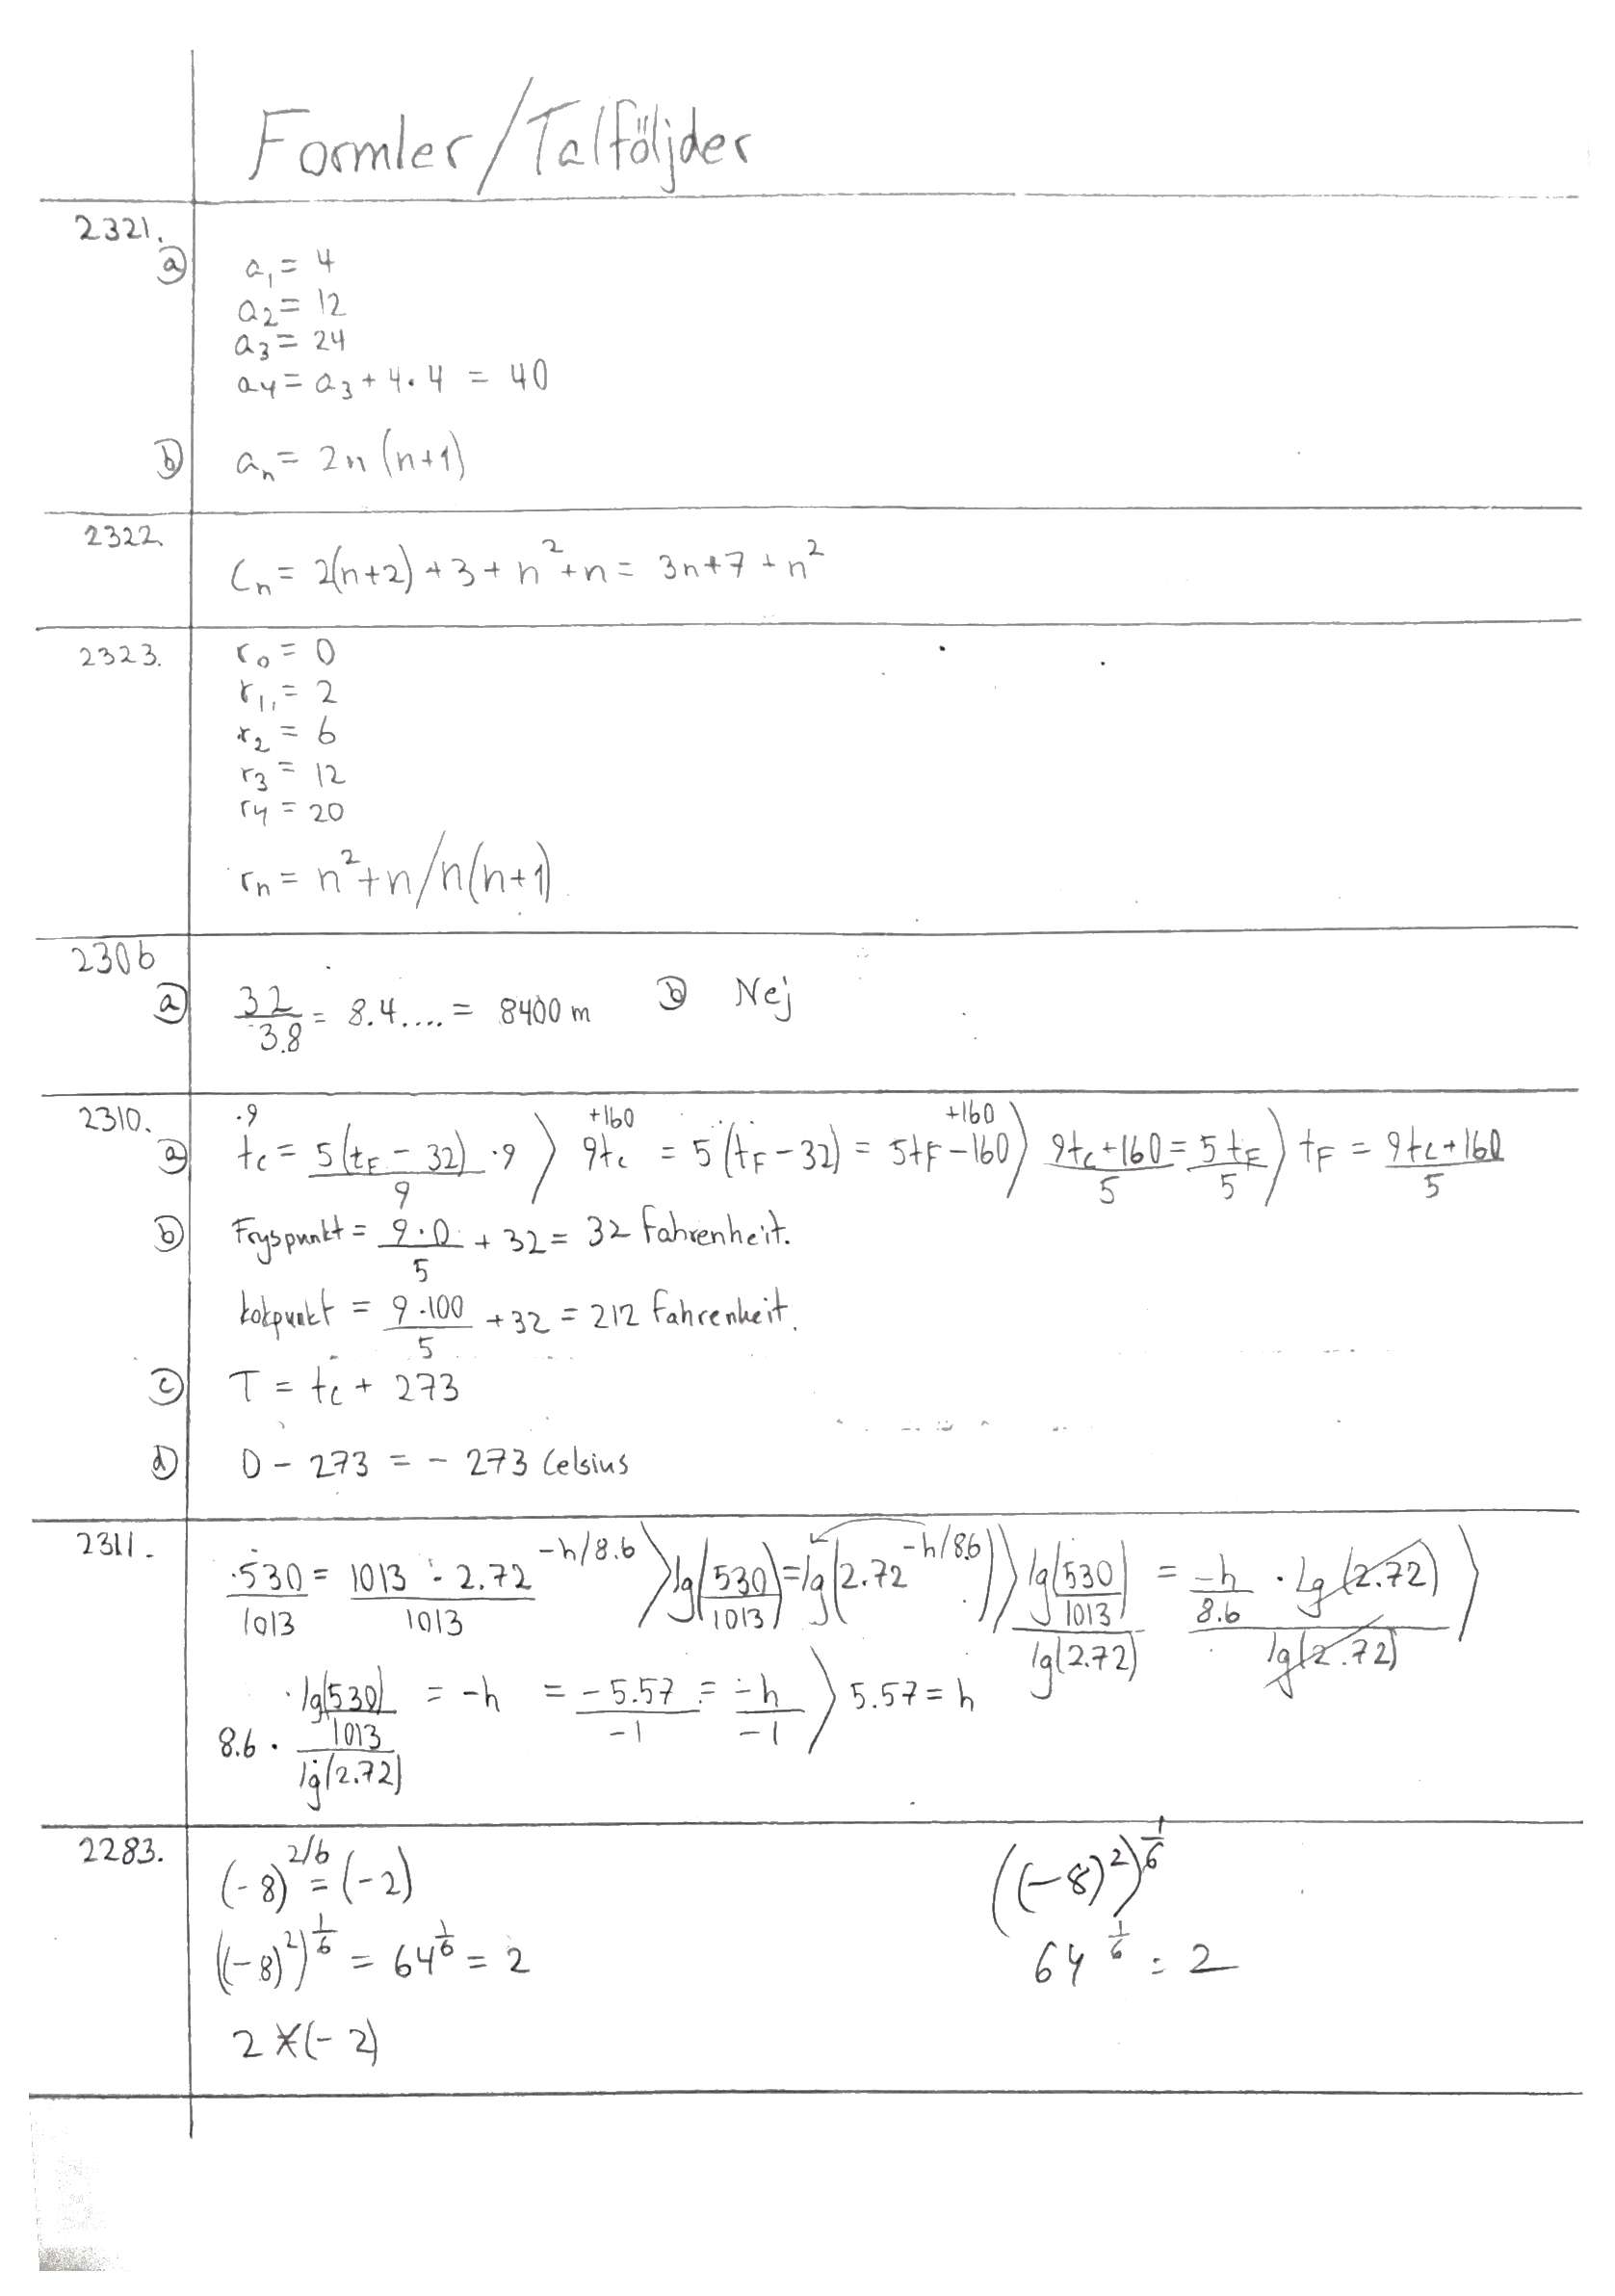 Formler/Talföljder
2321.
a) a₁ = 4
a₂ = 12
a₃ = 24
a₄ = a₃ + 4·4 = 40
b) aₙ = 2n(n+1)
2322.
Cₙ = 2(n+2) + 3 + n² + n = 3n + 7 + n²
2323.
r₀ = 0
r₁ = 2
r₂ = 6
r₃ = 12
r₄ = 20
rₙ = n² + n / n(n+1)
2306
a) 32/3.8 = 8.4.... = 8400 m b) Nej
2310.
·9 +160 +160
a) tc = 5(tF − 32)/9 ·9 ⟩ 9tc = 5(tF − 32) = 5tF − 160 ⟩ (9tc + 160)/5 = 5tF/5 ⟩ tF = (9tc + 160)/5
b) Fryspunkt = 9·0/5 + 32 = 32 Fahrenheit.
kokpunkt = 9·100/5 + 32 = 212 Fahrenheit.
c) T = tc + 273
d) 0 − 273 = − 273 Celsius
2311.
530/1013 = 1013 · 2.72^(−h/8.6)/1013 ⟩ lg(530/1013) = lg(2.72^(−h/8.6)) ⟩ lg(530/1013)/lg(2.72) = −h/8.6 · Lg(2.72)/lg(2.72) ⟩
8.6 · lg(530/1013)/lg(2.72) = −h = −5.57/−1 = −h/−1 ⟩ 5.57 = h
2283.
(−8)^(2/6) = (−2) ((−8)²)^(1/6)
((−8)²)^(1/6) = 64^(1/6) = 2 64^(1/6) = 2
2 ≠ (−2)